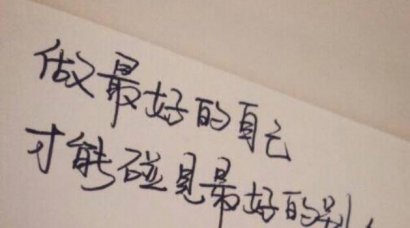 做最好的自己
才能碰見最好的别